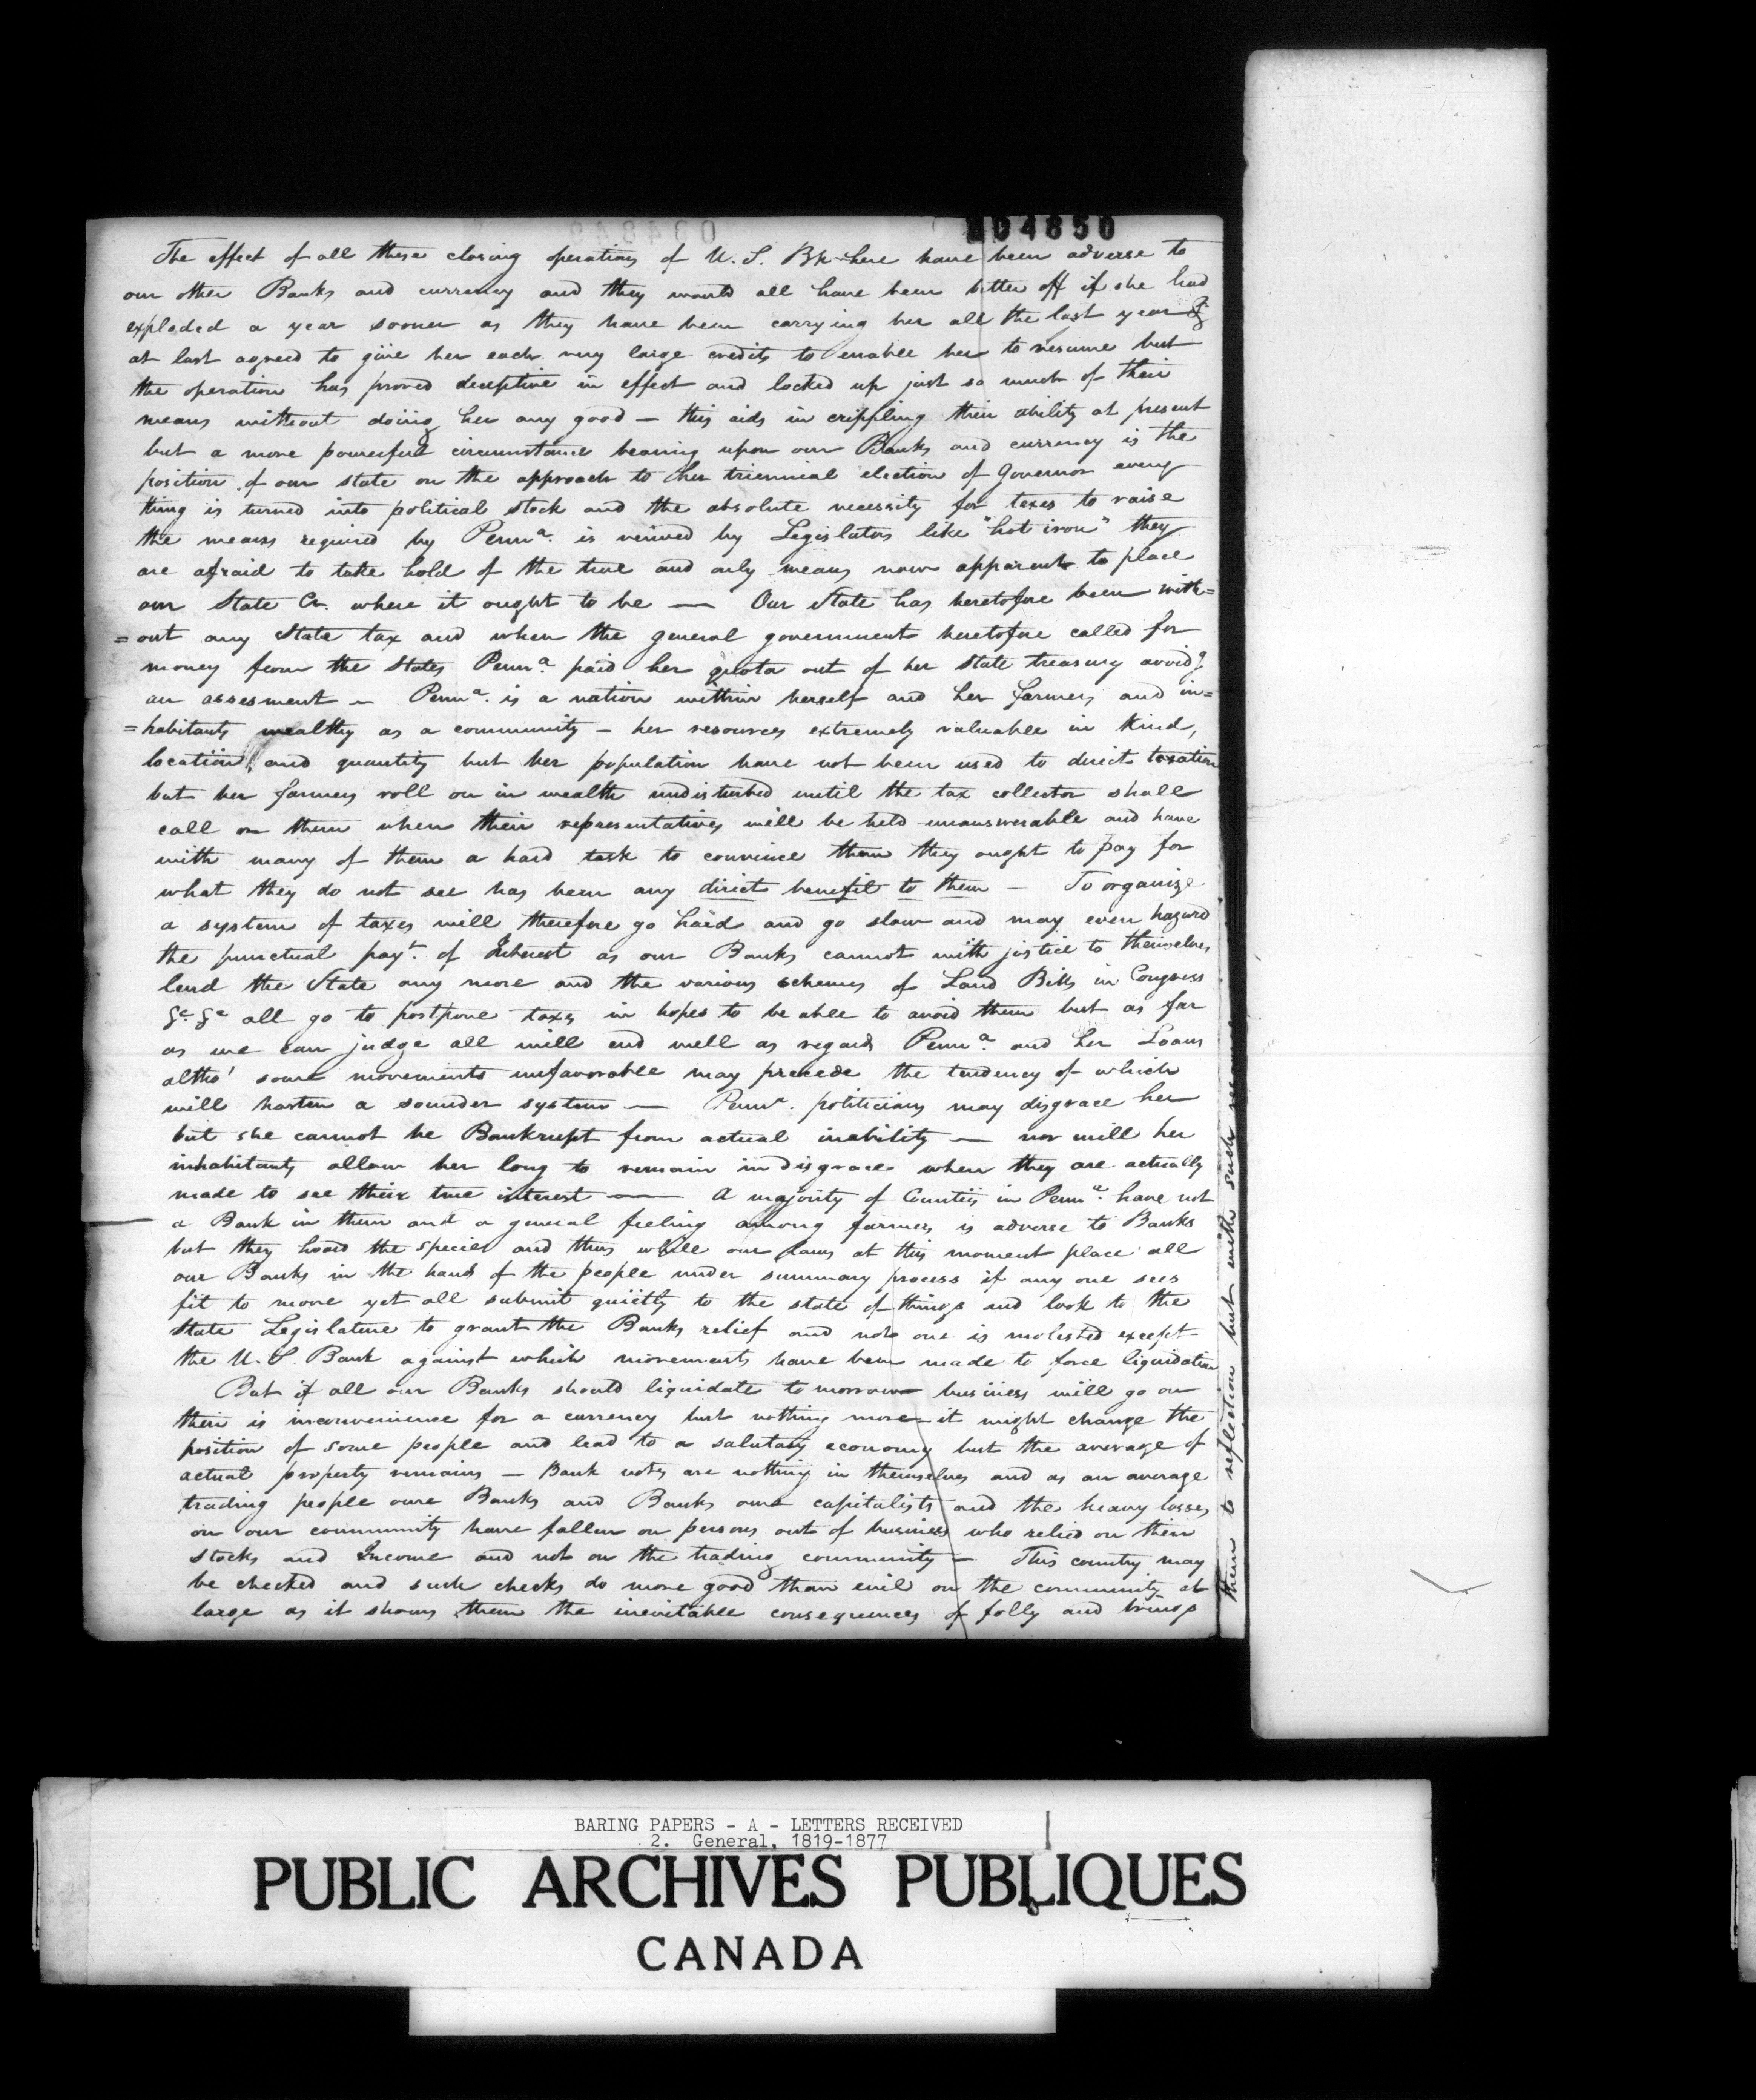 004850
The effect of all these closing operations of U. S. Bk here have been adverse to
our other Banks and currency and they would all have been better off if she had
exploded a year sooner as they have been carrying her all the last year &
at last agreed to give her each very large credits to enable her to resume but
the operation has proved deceptive in effect and locked up just so much of their
means without doing her any good — this aids in crippling their ability at present
but a more powerful circumstance bearing upon our Banks and currency is the
position of our state on the approach to her triennial election of Governor every
thing is turned into political stock and the absolute necessity for taxes to raise
the means required by Penna. is viewed by Legislators like "hot iron" they
are afraid to take hold of the true and only means now apparent to place
our State Cr. where it ought to be — Our State has heretofore been with=
=out any State tax and when the general government heretofore called for
money from the States Penna. paid her quota out of her state treasury avoidg.
an assesment — Penna. is a nation within herself and her farmers and in=
=habitants wealthy as a community — her resources extremely valuable in kind,
location, and quantity but her population have not been used to direct taxation
but her farmers roll on in wealth undisturbed until the tax collector shall
call on them when their representatives will be held unanswerable and have
with many of them a hard task to convince them they ought to pay for
what they do not see has been any direct benefit to them — To organize
a system of taxes will therefore go hard and go slow and may even hazard
the punctual payt. of Interest as our Banks cannot with justice to themselves
lend the State any more and the various schemes of Land Bills in Congress
&c. &c all go to postpone taxes in hopes to be able to avoid them but as far
as we can judge all will end well as regards Penna. and her Loans
altho' some movements unfavorable may precede the tendency of which
will hasten a sounder system — Penna. politicians may disgrace her
but she cannot be Bankrupt from actual inability — nor will her
inhabitants allow her long to remain in disgrace when they are actually
made to see their true interest — A majority of Counties in Penna. have not
a Bank in them and a general feeling among farmers is adverse to Banks
but they hoard the specie and thus while our laws at this moment place all
our Banks in the hands of the people under summary process if any one sees
fit to move yet all submit quietly to the state of things and look to the
State Legislature to grant the Banks relief and not one is molested except
the U. S. Bank against which movements have been made to force liquidation
But if all our Banks should liquidate tomorrow business will go on
there is inconvenience for a currency but nothing more it might change the
position of some people and lead to a salutary economy but the average of
actual property remains — Bank notes are nothing in themselves and as an average
trading people owe Banks and Banks owe capitalists and the heavy losses
on our community have fallen on persons out of business who relied on their
stocks and Income and not on the trading community — This country may
be checked and such checks do more good than evil on the community at
large as it shows them the inevitable consequences of folly and brings
them to reflection but with such
BARING PAPERS - A - LETTERS RECEIVED
2. General, 1819-1877
PUBLIC ARCHIVES PUBLIQUES
CANADA